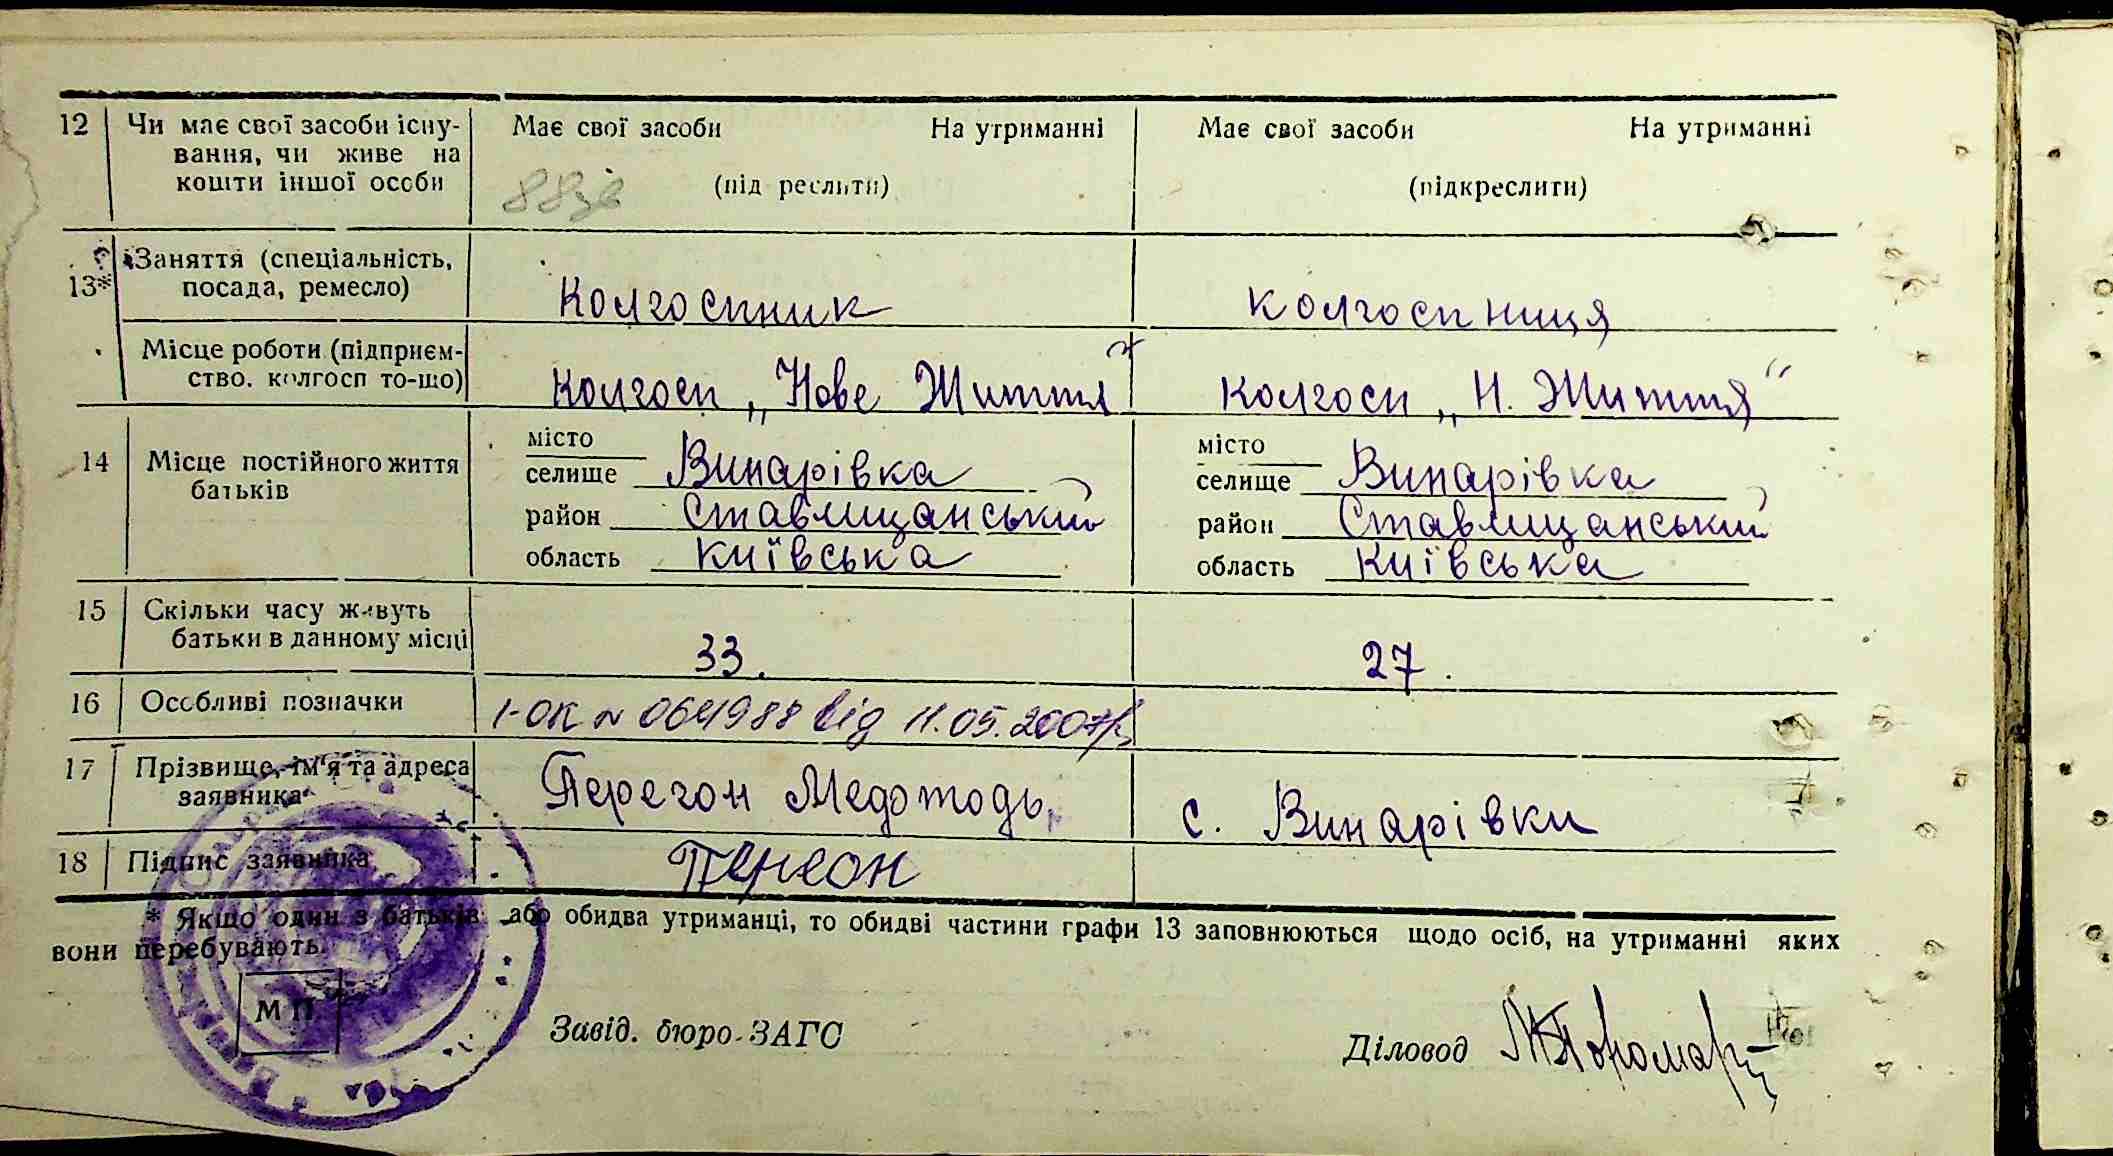 12 Чи має свої засоби існу- Має свої засоби На утриманні Має свої засоби На утриманні
вання, чи живе на
кошти іншої особи (під реслити) (підкреслити)
13* Заняття (спеціальність,
посада, ремесло) Колгоспник колгоспниця
Місце роботи (підприєм-
ство. колгосп то-що) Колгосп „Нове Життя" Колгосп „Н. Життя"
14 Місце постійного життя
батьків
місто
селище Винарівка
район Ставищанський
область Київська
місто
селище Винарівка
район Ставищанський
область Київська
15 Скільки часу живуть
батьки в данному місці 33. 27.
16 Особливі позначки І-ОК № 064988 від 11.05.2007р.
17 Прізвище, ім'я та адреса
заявника Перегон с. Винарівки
18 Підпис заявника
* Якщо один з батьків або обидва утриманці, то обидві частини графи 13 заповнюються щодо осіб, на утриманні яких
вони перебувають.
М П
Завід. бюро ЗАГС Діловод